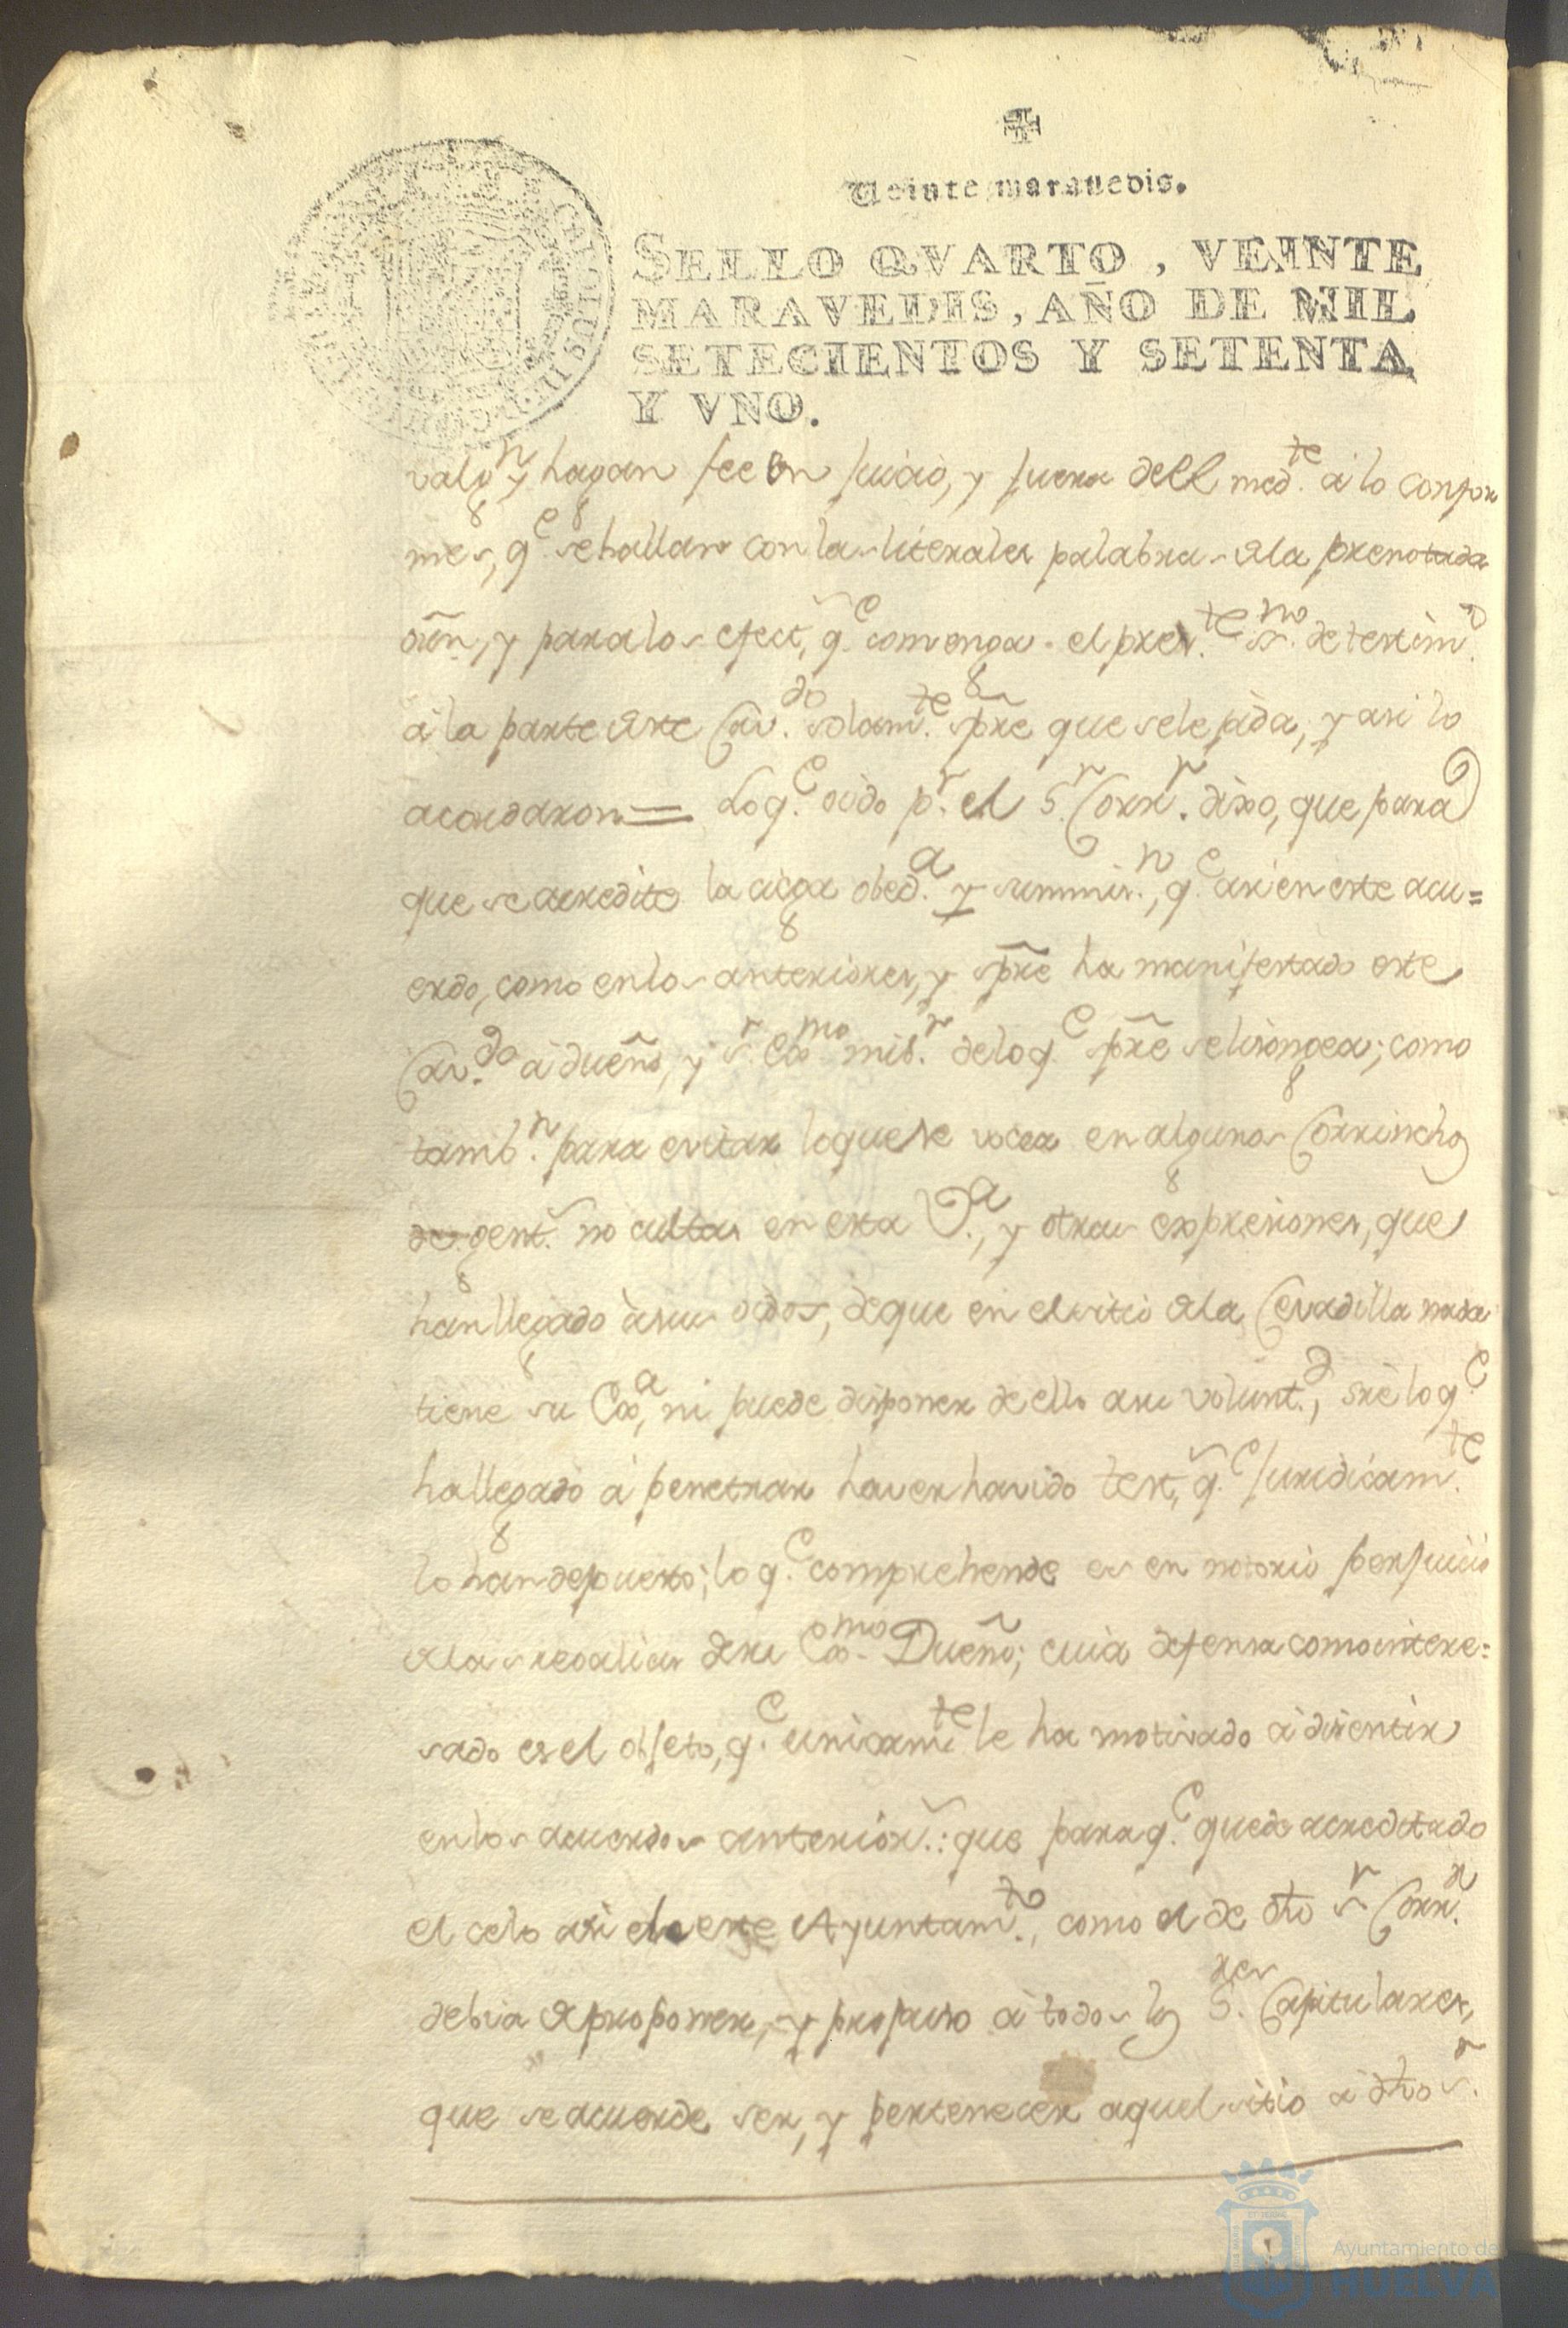 ✠
Veinte maravedis.
SELLO QVARTO, VEINTE
MARAVEDIS, AÑO DE MIL
SETECIENTOS Y SETENTA
Y VNO.
valgn y hagan fee en juicio, y fuera dell medte. à lo confor
mes, qe. se hallan con las literales palabras dela prenotada
orñ, y para los efect, qe. convenga el preste. ssno. de testimo.
à la parte deste Cavdo. solamte. spre que sele pida, y asi lo
acordaron = Lo qe. oido pr. el Sr. Corrr. dixo, que para
que se acredite la ciega obeda. y summisn., qe. asi en este acu=
erdo, como en los anteriores, y spre ha manifestado este
Cavdo. à dueño, y sr. Exmo. mio. de lo qe. spre se lisongea; como
tambn. para evitar loque se vocea en algunos Corrinchos
de gent. no cultas en esta Va., y otras expresiones, que
han llegado à sus oidos, de que en el sitio dela Cevadilla nada
tiene su Exa., ni puede disponer de ello a su voluntd., sre lo qe.
ha llegado à penetrar haver havido test, qe. juridicamte.
lo han depuesto; lo qe. comprehende es en notorio perjuicio
delas regalias de su Exmo. Dueño; cuia defensa como intere=
sado es el objeto, qe. unicamte. le ha motivado à disentir
en los acuerdos anterior.: que para qe. quede acreditado
el celo asi de este Ayuntamto., como el de dho sr. Corrr.
debia de proponer, y propuso à todos los Sres. Capitulares,
que se acuerde ser, y pertenecer aquel sitio à dho sr.
Ayuntamiento de
HUELVA